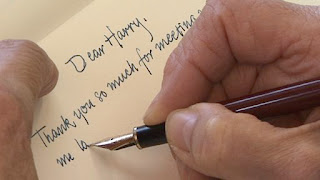 Dear Harry,
Thank you so much for meeting
me la